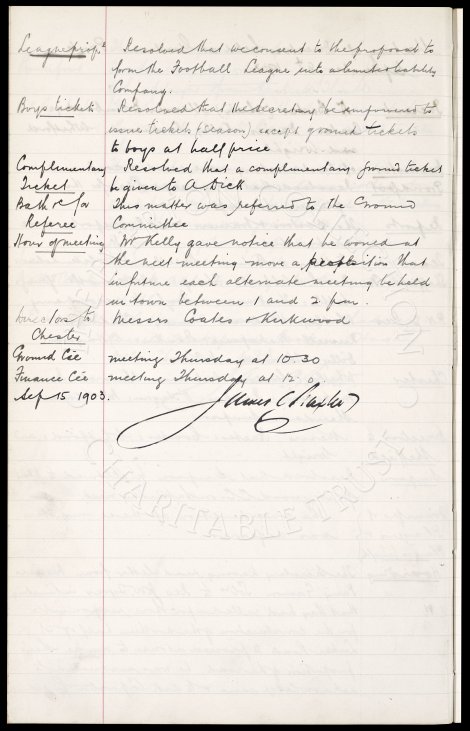 League prop^l Resolved that we consent to the proposal to
form the Football League into a limited liability
Company.
Boys tickets Resolved that the Secretary be empowered to
issue tickets (season) except ground tickets
to boys at half price
Complimentary Resolved that a complimentary ground ticket
Ticket be given to A Dick
Bath &c for This matter was referred to the Ground
Referee Committee
Hour of meeting Mr Kelly gave notice that he would at
the next meeting move a that
in future each alternate meeting be held
in town between 1 and 2 pm.
Directors to Messrs Coates & Kirkwood
Chester
Ground Cee meeting Thursday at 10.30
Finance Cee meeting Thursday at 12.
Sep 15 1903. James C Baxter
CHARITABLE TRUST